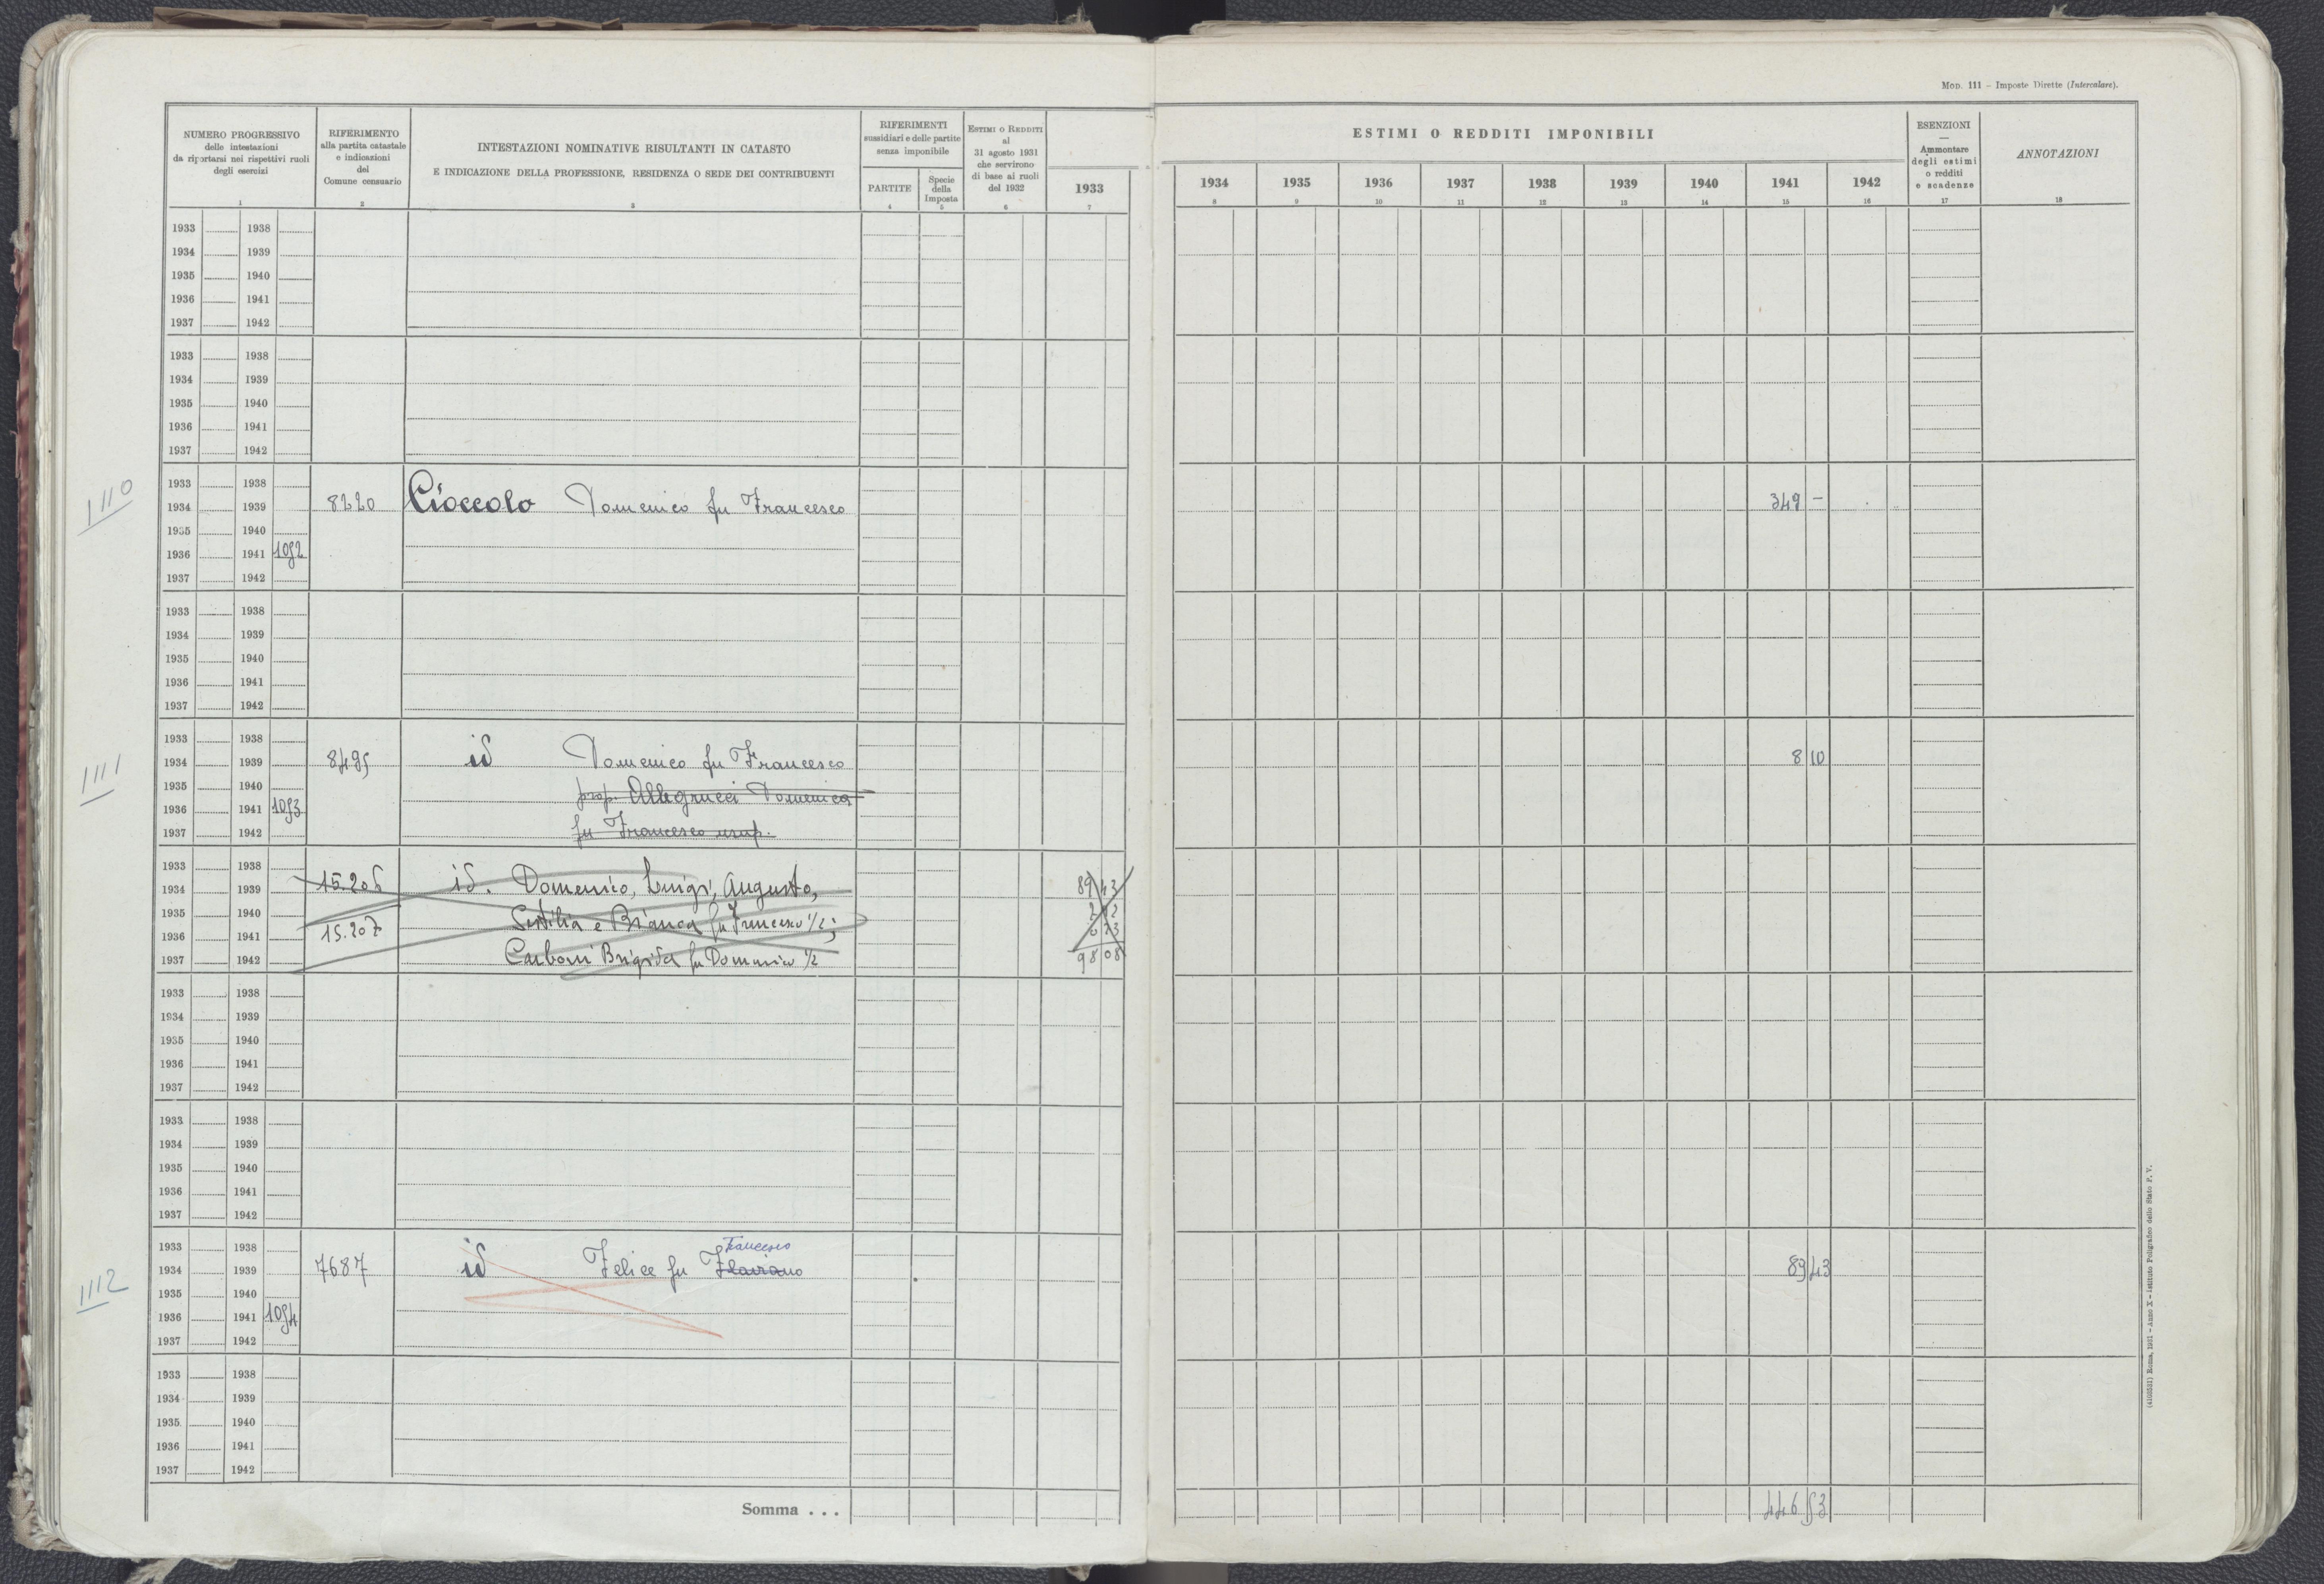 Mod. 111 – Imposte Dirette (Intercalare).
NUMERO PROGRESSIVO
delle intestazioni
da riportarsi nei rispettivi ruoli
degli esercizi
1
RIFERIMENTO
alla partita catastale
e indicazioni
del
Comune censuario
2
INTESTAZIONI NOMINATIVE RISULTANTI IN CATASTO
E INDICAZIONE DELLA PROFESSIONE, RESIDENZA O SEDE DEI CONTRIBUENTI
3
RIFERIMENTI
sussidiari e delle partite
senza imponibile
PARTITE
4
Specie
della
Imposta
5
Estimi o Redditi
al
31 agosto 1931
che servirono
di base ai ruoli
del 1932
6
1933
7
ESTIMI O REDDITI IMPONIBILI
1934 1935 1936 1937 1938 1939 1940 1941 1942
8 9 10 11 12 13 14 15 16
ESENZIONI
—
Ammontare
degli estimi
o redditi
e scadenze
17
ANNOTAZIONI
18
1933 1938
1934 1939
1935 1940
1936 1941
1937 1942
1933 1938
1934 1939
1935 1940
1936 1941
1937 1942
1110
1933 1938
1934 1939 8220 Cioccolo Domenico fu Francesco 349 –
1935 1940
1936 1941 1092
1937 1942
1933 1938
1934 1939
1935 1940
1936 1941
1937 1942
1111
1933 1938
1934 1939 8495 id Domenico fu Francesco 8 10
1935 1940 prop. Allegrucci Domenica
1936 1941 1093
1937 1942 fu Francesco usuf.
1933 1938
1934 1939 15.206 id. Domenico, Luigi, Augusto, 89 43
1935 1940 Sestilia e Bianca fu Francesco 1/2;
1936 1941 15.207
1937 1942 Carboni Brigida fu Domenico 1/2 98 08
1933 1938
1934 1939
1935 1940
1936 1941
1937 1942
1933 1938
1934 1939
1935 1940
1936 1941
1937 1942
1112
1933 1938 Francesco
1934 1939 7687 id Felice fu Flaviano 89 43
1935 1940
1936 1941 1094
1937 1942
1933 1938
1934 1939
1935 1940
1936 1941
1937 1942
Somma . . . 446 53
(4103531) Roma, 1931 – Anno X – Istituto Poligrafico dello Stato P. V.